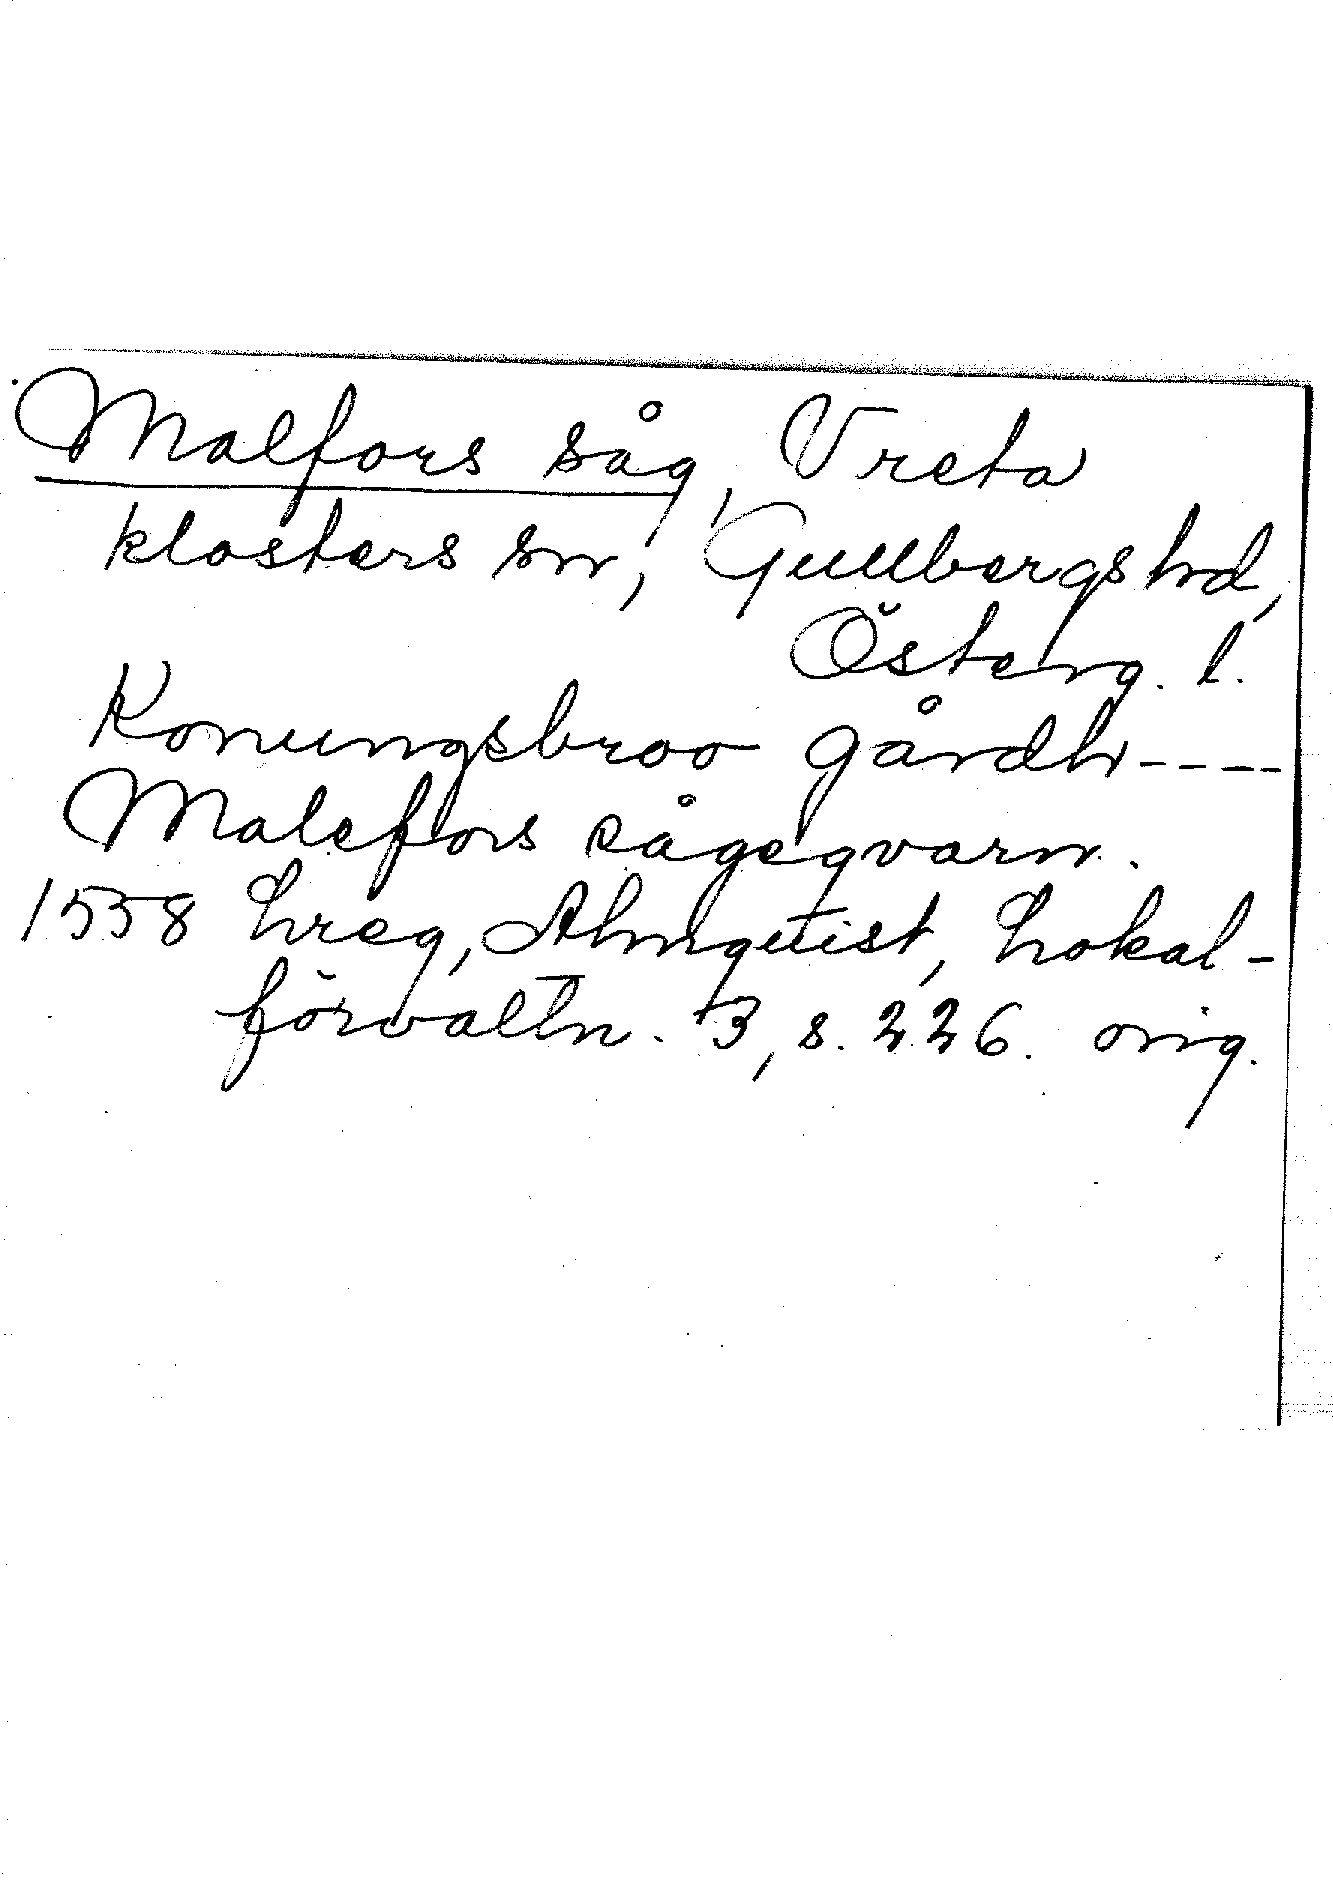 Malfors såg, Vreta
klosters sn, Gullbergs hd,
Österg. l.
Konungsbroo gårdh ----
Malefors sågeqvarn.
1558 Lreg, Almquist, Lokal-
förvaltn. 3, s. 226. orig.